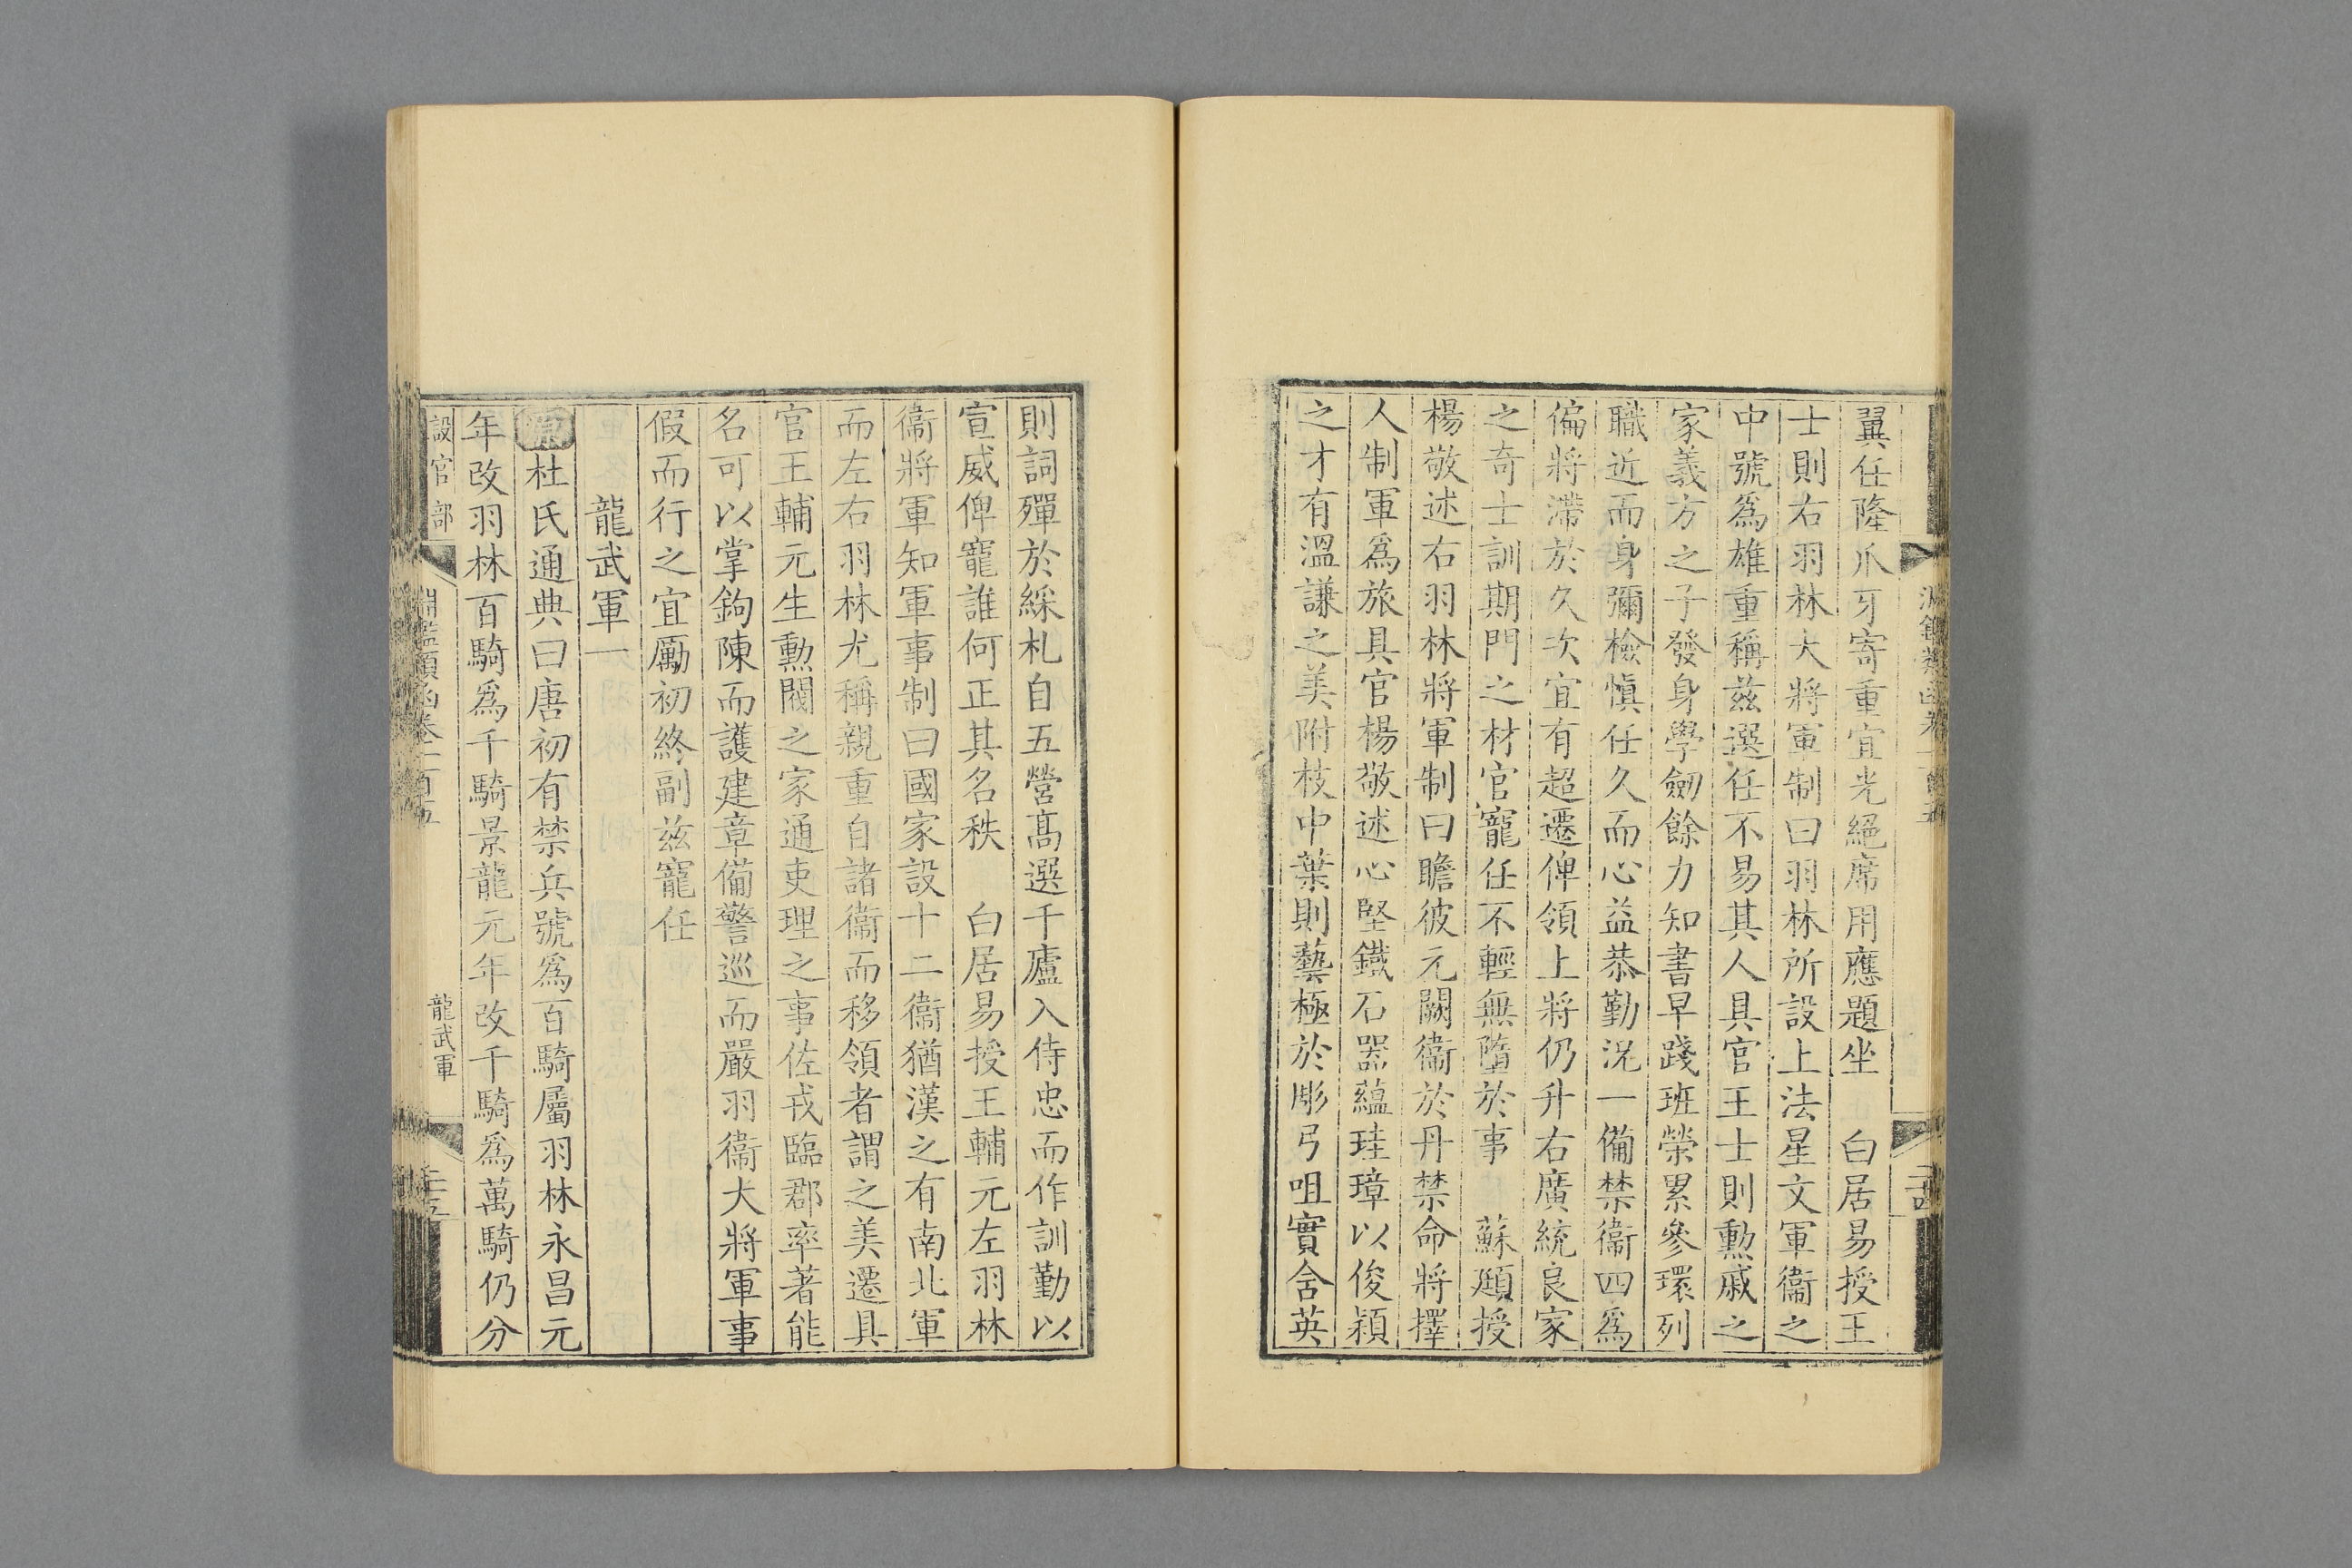 翼任隆爪牙寄重宜光絕席用應題坐　白居易授王
士則右羽林大將軍制曰羽林所設上法星文軍衞之
中號爲雄重稱茲選任不易其人具官王士則勳戚之
家義方之子發身學劒餘力知書早踐班榮累參環列
職近而身彌檢愼任久而心益恭勤況一備禁衞四爲
偏將滯於久次宜有超遷俾領上將仍升右廣統良家
之奇士訓期門之材官寵任不輕無墮於事　蘇頲授
楊敬述右羽林將軍制曰瞻彼元闕衞於丹禁命將擇
人制軍爲旅具官楊敬述心堅鐵石器蘊珪璋以俊穎
之才有溫謙之美附枝中葉則藝極於彫弓咀實含英
則詞殫於綵札自五營高選千廬入侍忠而作訓勤以
宣威俾寵誰何正其名秩　白居易授王輔元左羽林
衞將軍知軍事制曰國家設十二衞猶漢之有南北軍
而左右羽林尤稱親重自諸衞而移領者謂之美遷具
官王輔元生勳閥之家通吏理之事佐戎臨郡率著能
名可以掌鉤陳而護建章備警巡而嚴羽衞大將軍事
假而行之宜勵初終副茲寵任
龍武軍一
杜氏通典曰唐初有禁兵號爲百騎屬羽林永昌元
年改羽林百騎爲千騎景龍元年改千騎爲萬騎仍分
設官部
淵鑑類函卷一百五
龍武軍